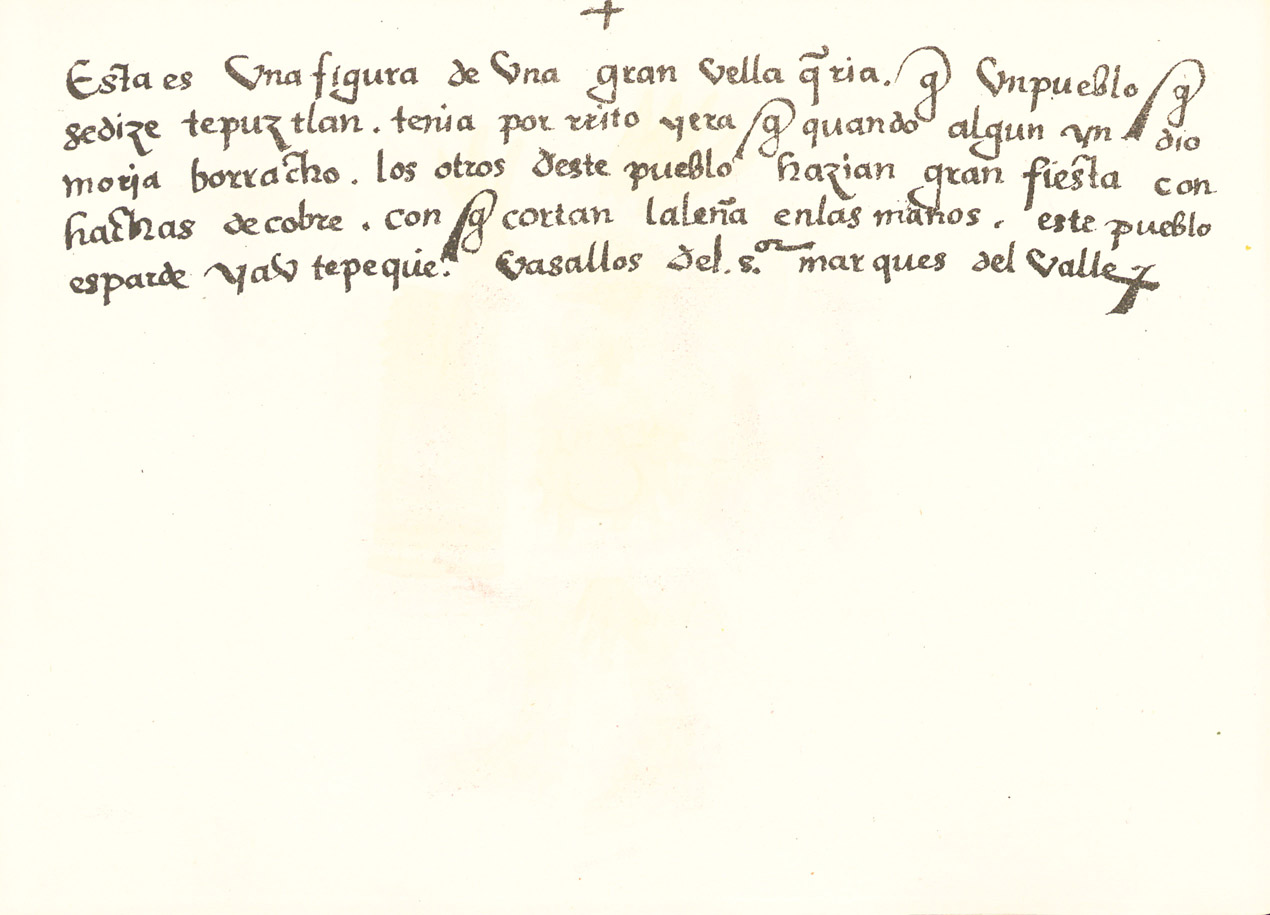 +
Esta es Vna figura de Vna gran Vella q̃ria. q̃ Vnpueblo q̃
sedize tepuztlan. tenia por rrito yera q̃ quando algun yn dio
moria borracho. los otros deste pueblo hazian gran fiesta con
hachas decobre. con q̃ cortan laleña enlas manos. este pueblo
esparde yaV tepeque. Vasallos del. s.or marques del Valle